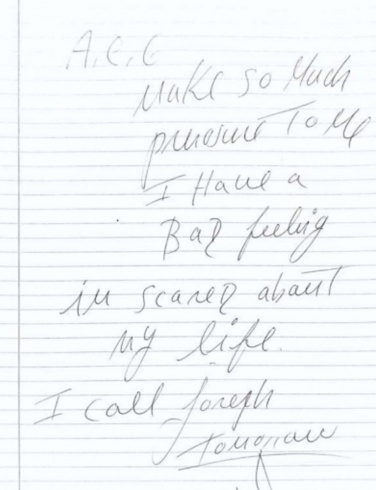 A.C.C
Make so Much
pressure To Me
I Have a
Bad feeling
im scared about
my life.
I call Joseph
Tomorrow